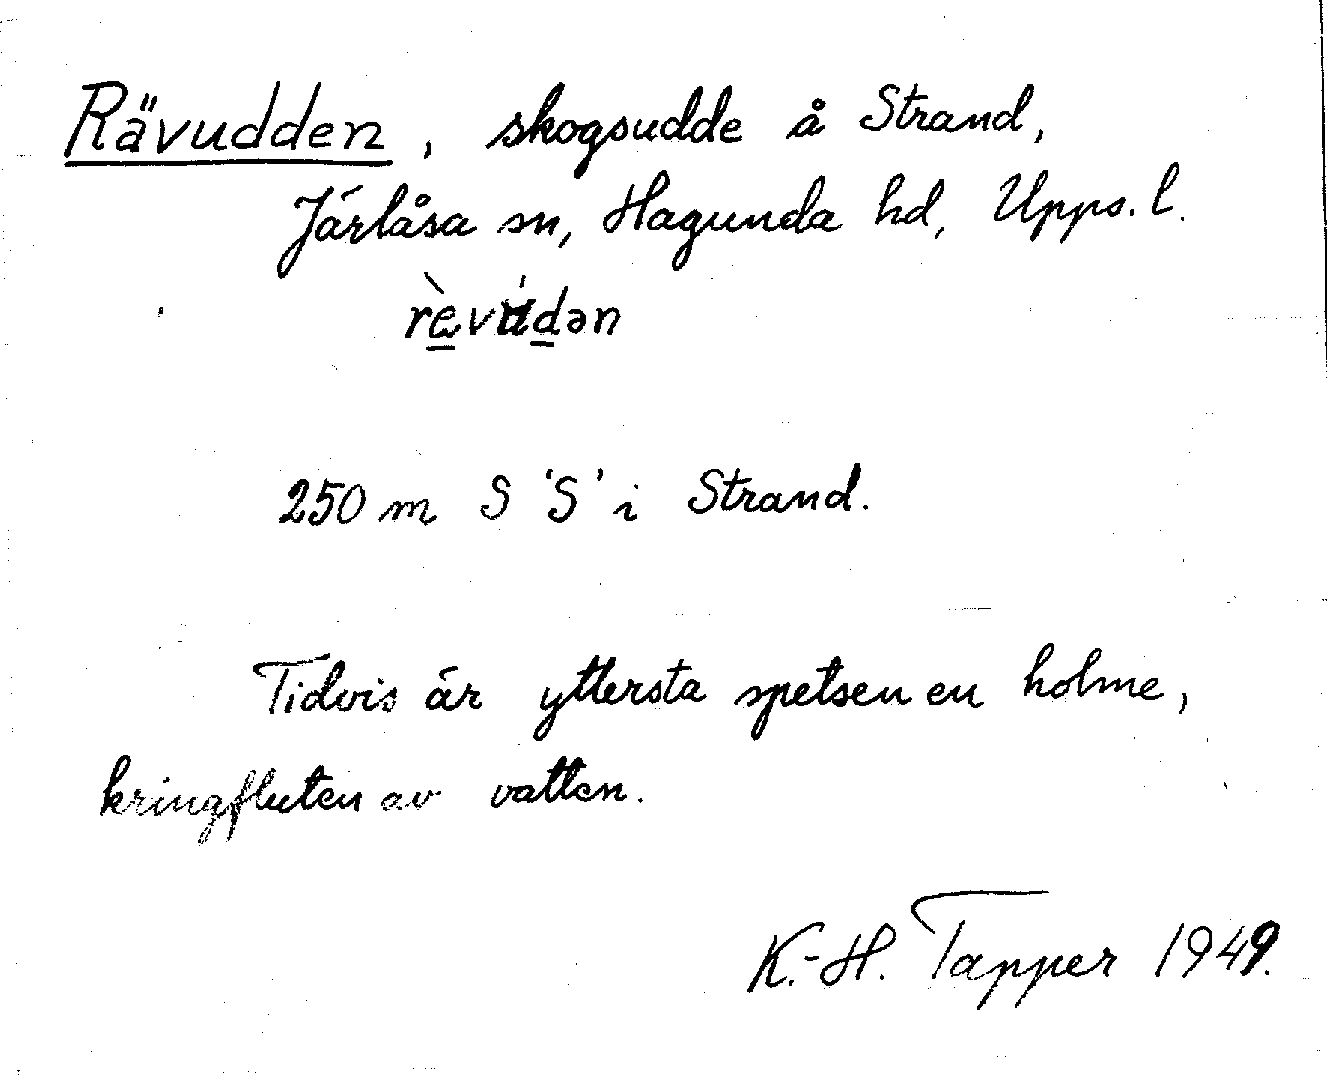 Rävudden, skogsudde å Strand,
Järlåsa sn, Hagunda hd, Upps. l.
250 m S 'S' i Strand.
Tidvis är yttersta spetsen en holme,
kringfluten av vatten.
K.-H. Tapper 1949.